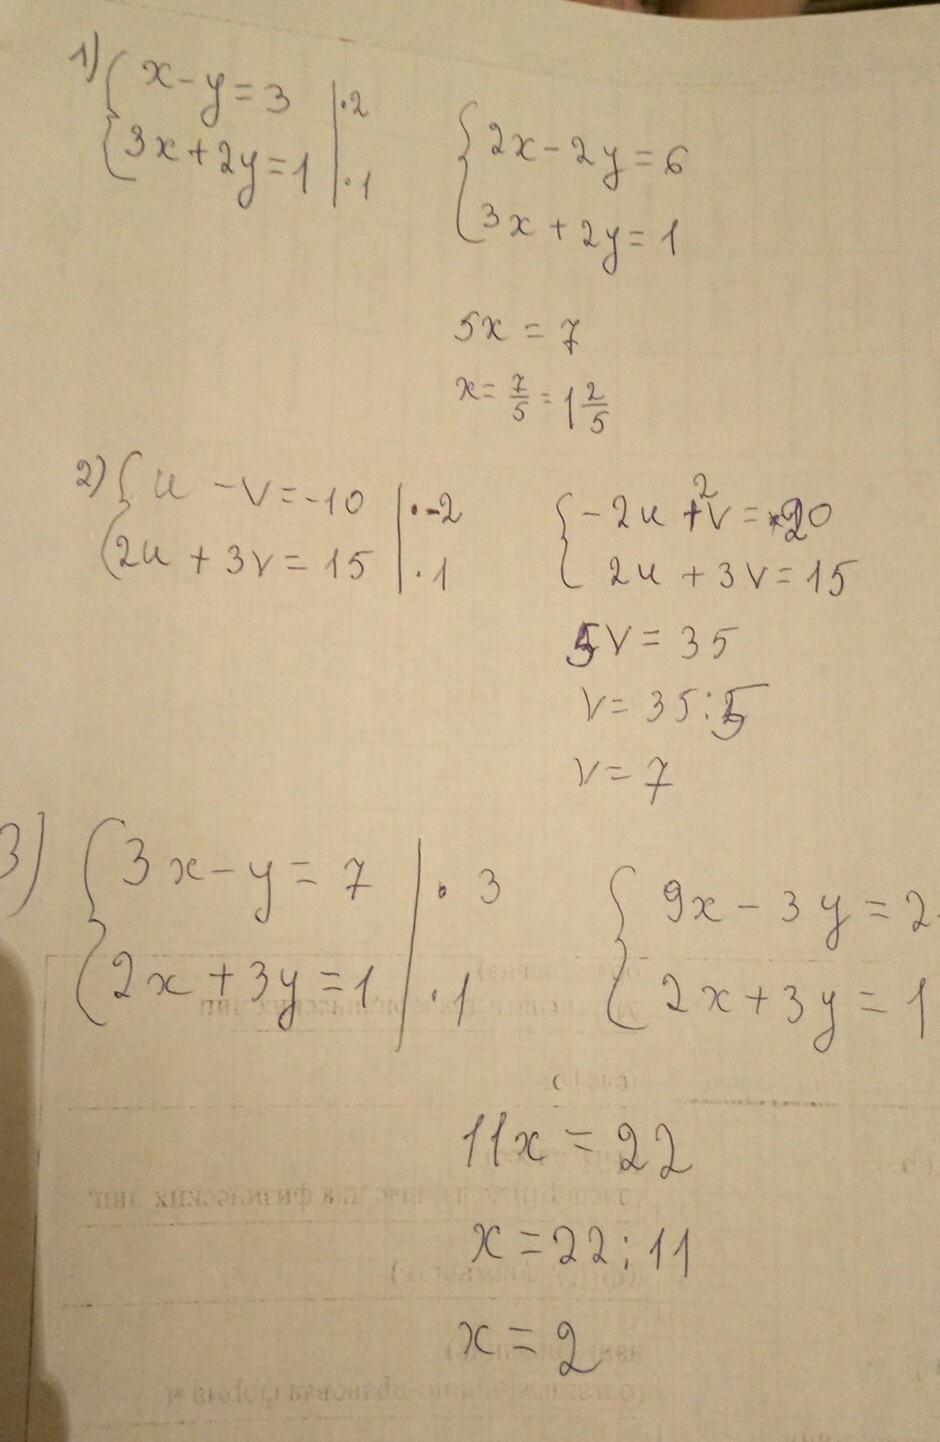 1) { x - y = 3 | ·2
3x + 2y = 1 | ·1
{ 2x - 2y = 6
3x + 2y = 1
5x = 7
x = 7/5 = 1 2/5
2) { u - v = -10 | ·-2
2u + 3v = 15 | ·1
{ -2u + 2v = 20
2u + 3v = 15
5v = 35
v = 35 : 5
v = 7
3) { 3x - y = 7 | · 3
2x + 3y = 1 | ·1
{ 9x - 3y = 2
2x + 3y = 1
11x = 22
x = 22 : 11
x = 2